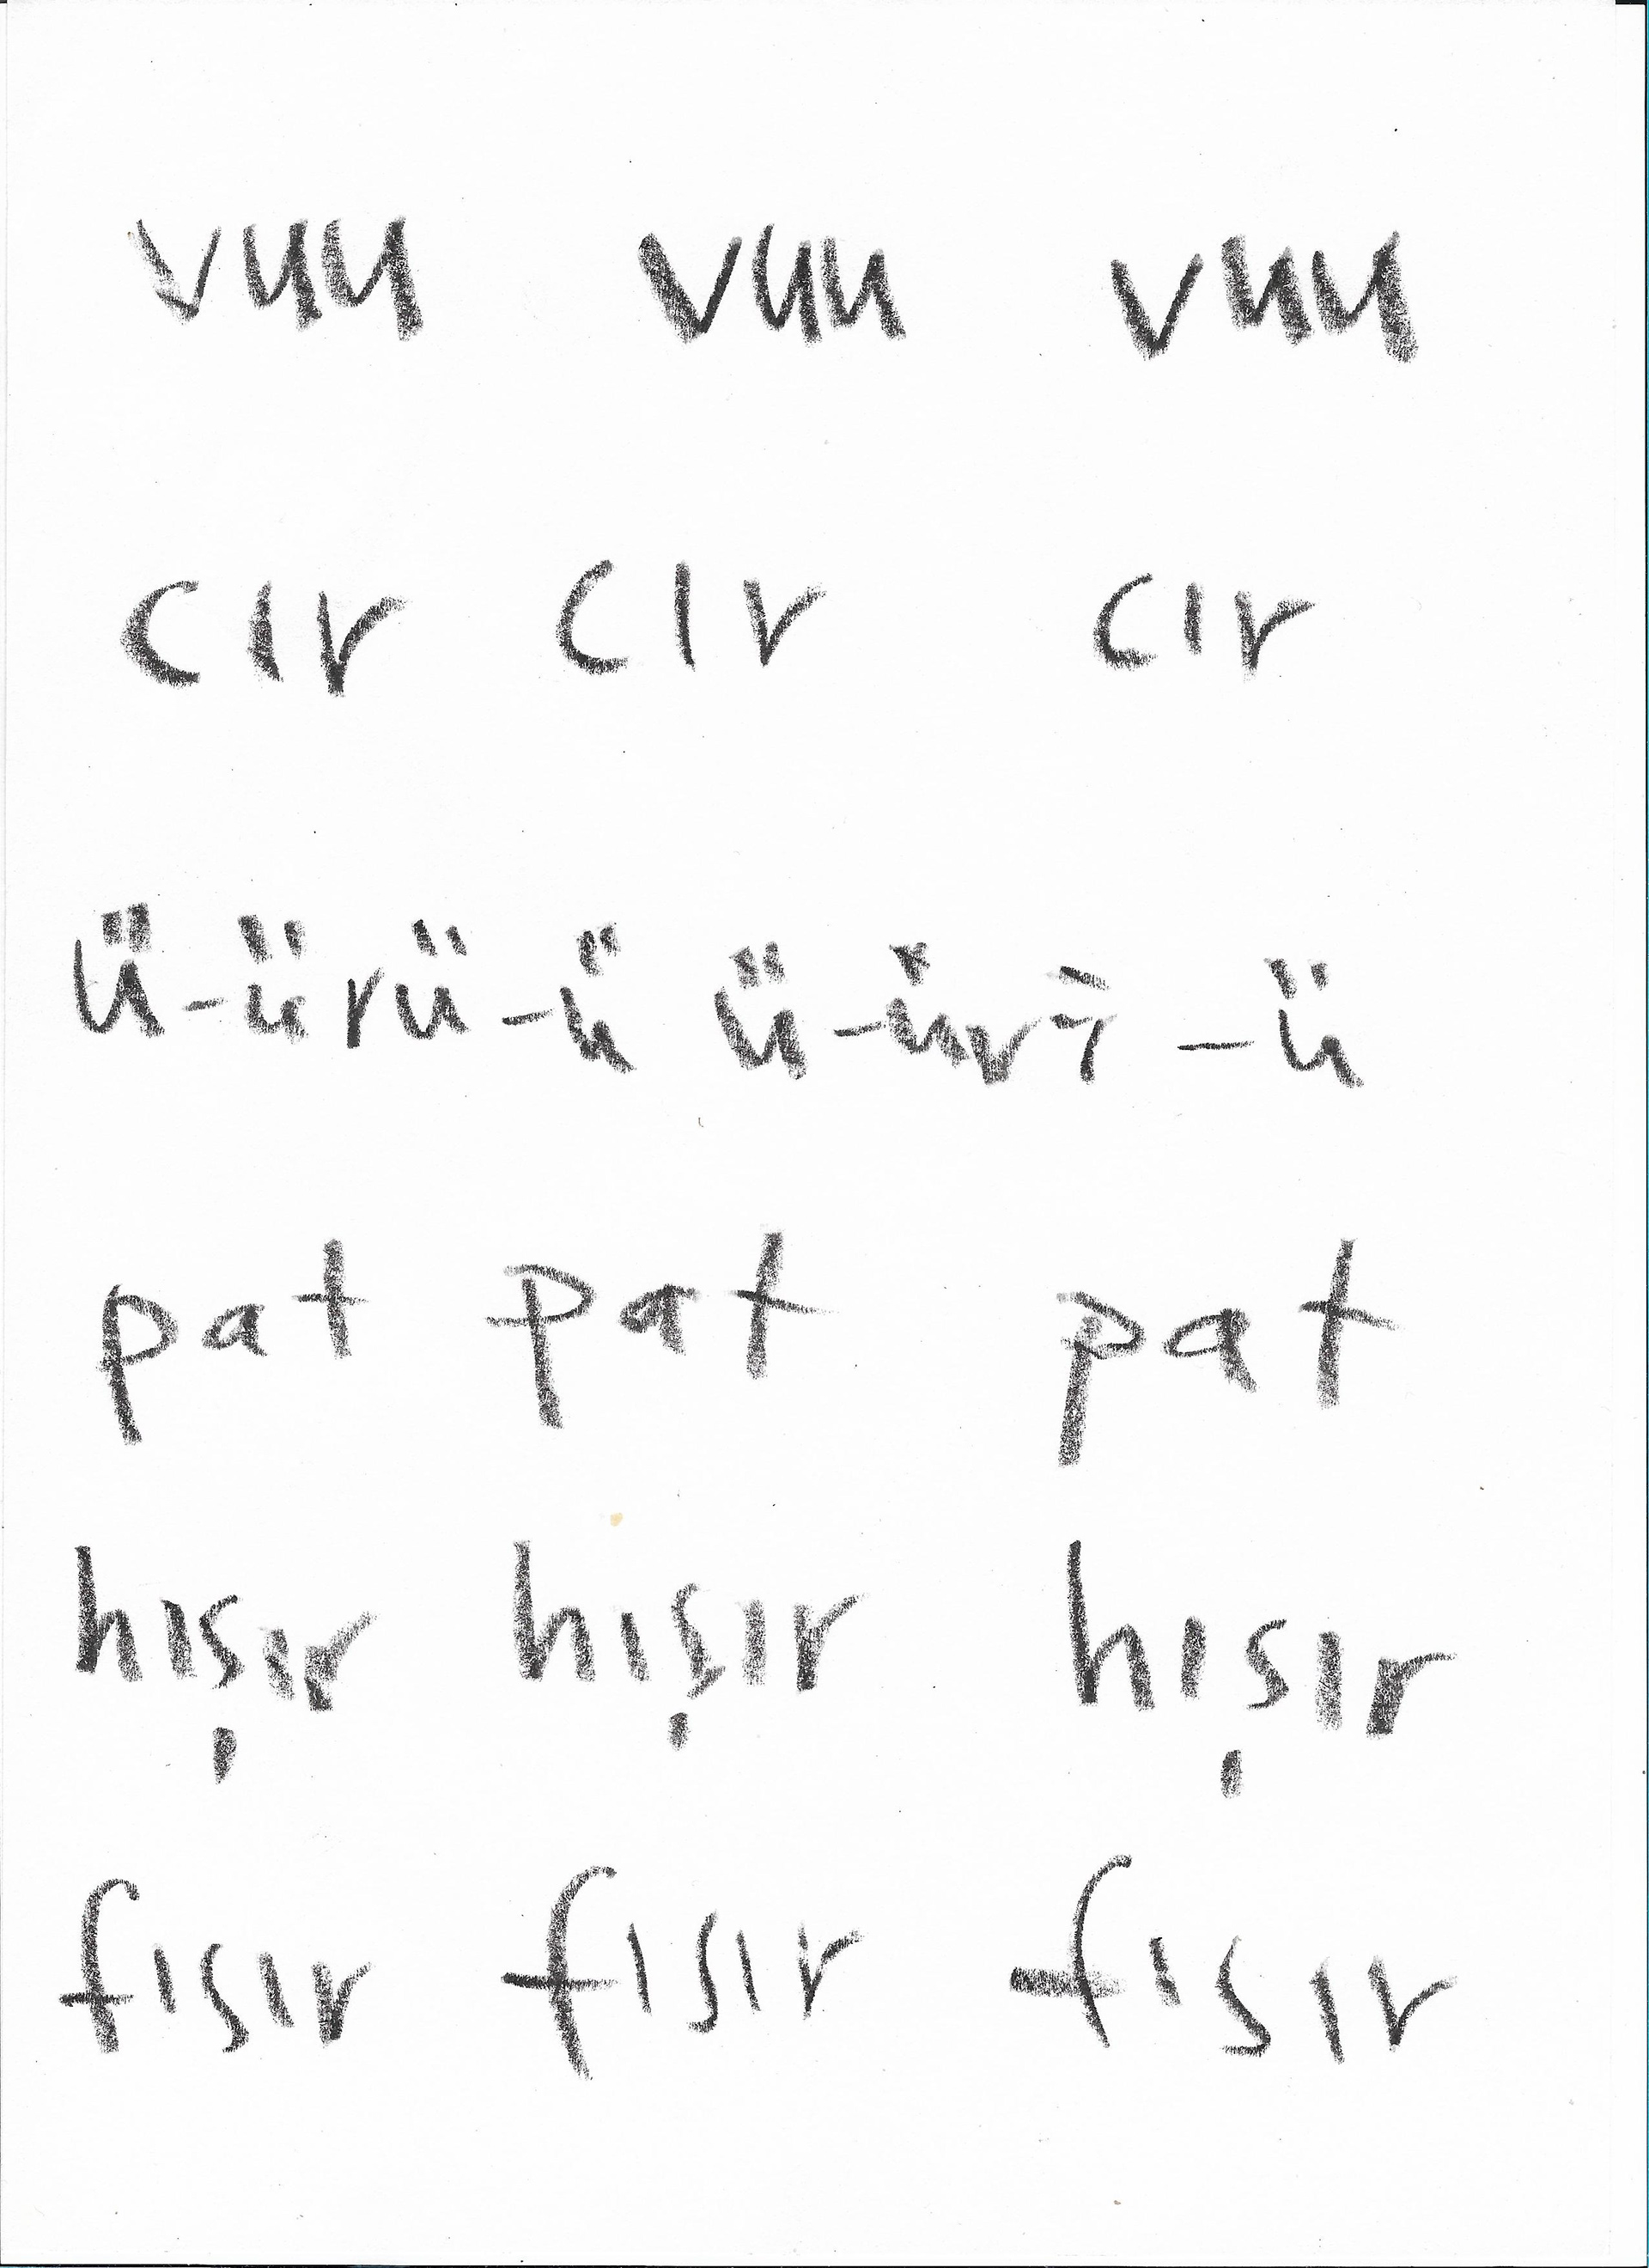 vuu vuu vuu
cır cır cır
ü-ürü-ü
pat pat pat
hışır hışır hışır
fısır fısır fısır